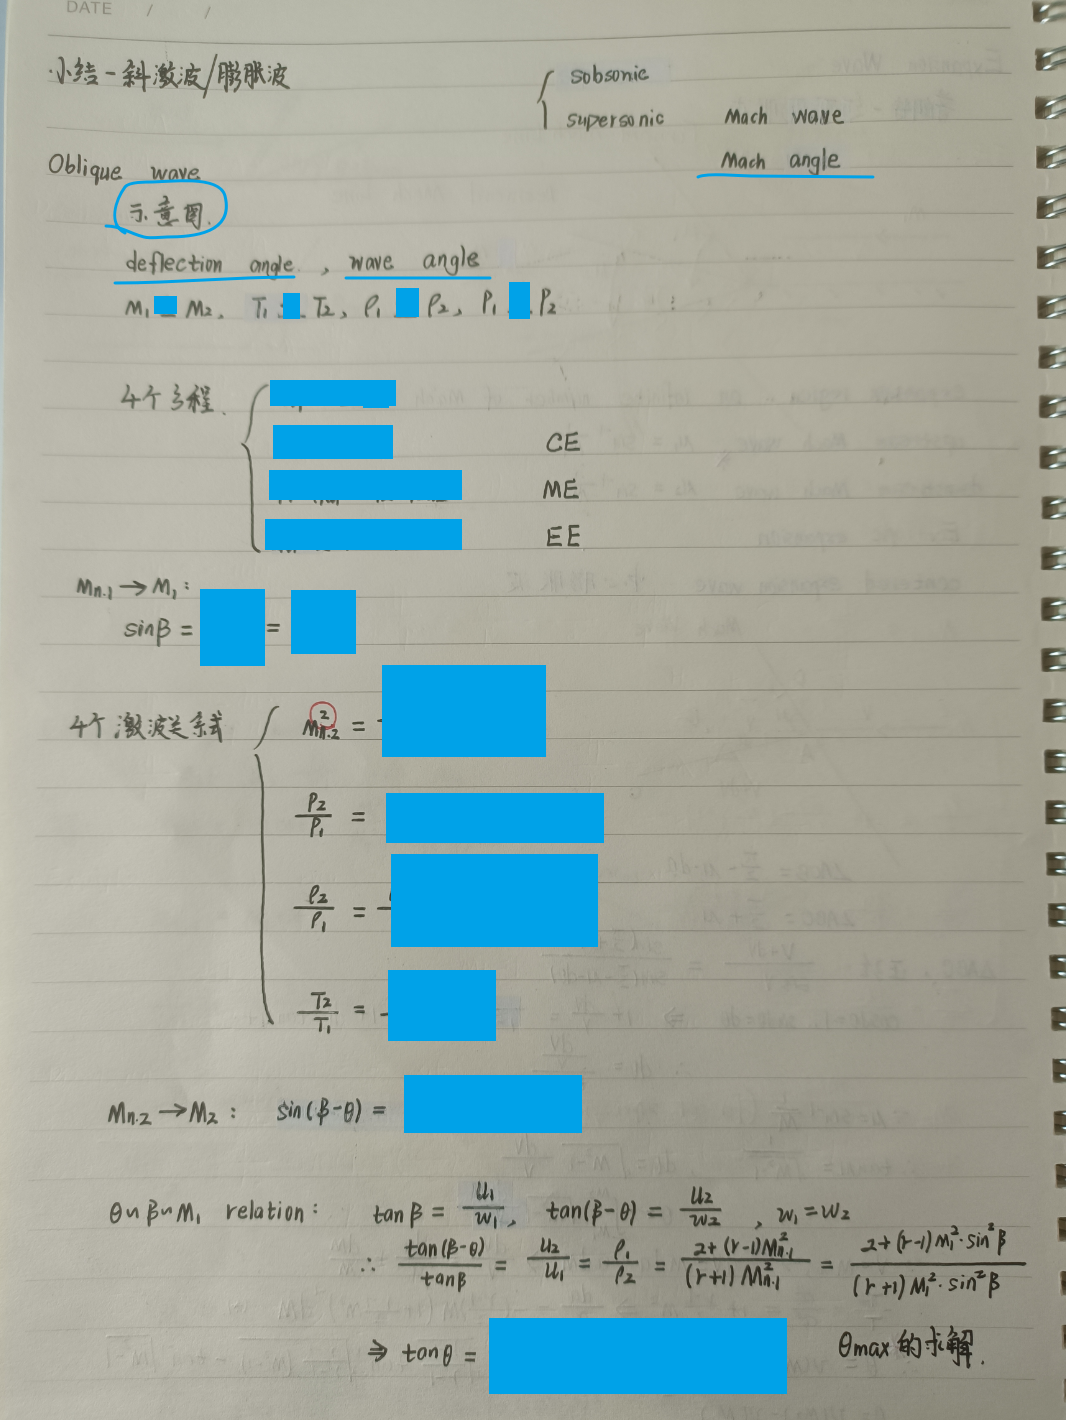 DATE / /
小结-斜激波/膨胀波
sobsonic
supersonic Mach wave
Mach angle
Oblique wave
示意图.
deflection angle, wave angle
M₁ M₂, T₁ T₂, ρ₁ ρ₂, P₁ P₂
4个方程.
CE
ME
EE
Mn.1 → M₁:
sinβ = =
4个激波关系式
M²n.2 =
P₂/P₁ =
ρ₂/ρ₁ =
T₂/T₁ =
Mn.2 → M₂: sin(β-θ) =
θ~β~M₁ relation: tanβ = u₁/w₁, tan(β-θ) = u₂/w₂, w₁=w₂
∴ tan(β-θ)/tanβ = u₂/u₁ = ρ₁/ρ₂ = 2+(r-1)M²n.1/(r+1)M²n.1 = 2+(r-1)M₁²·sin²β/(r+1)M₁²·sin²β
⇒ tanθ = θmax的求解.